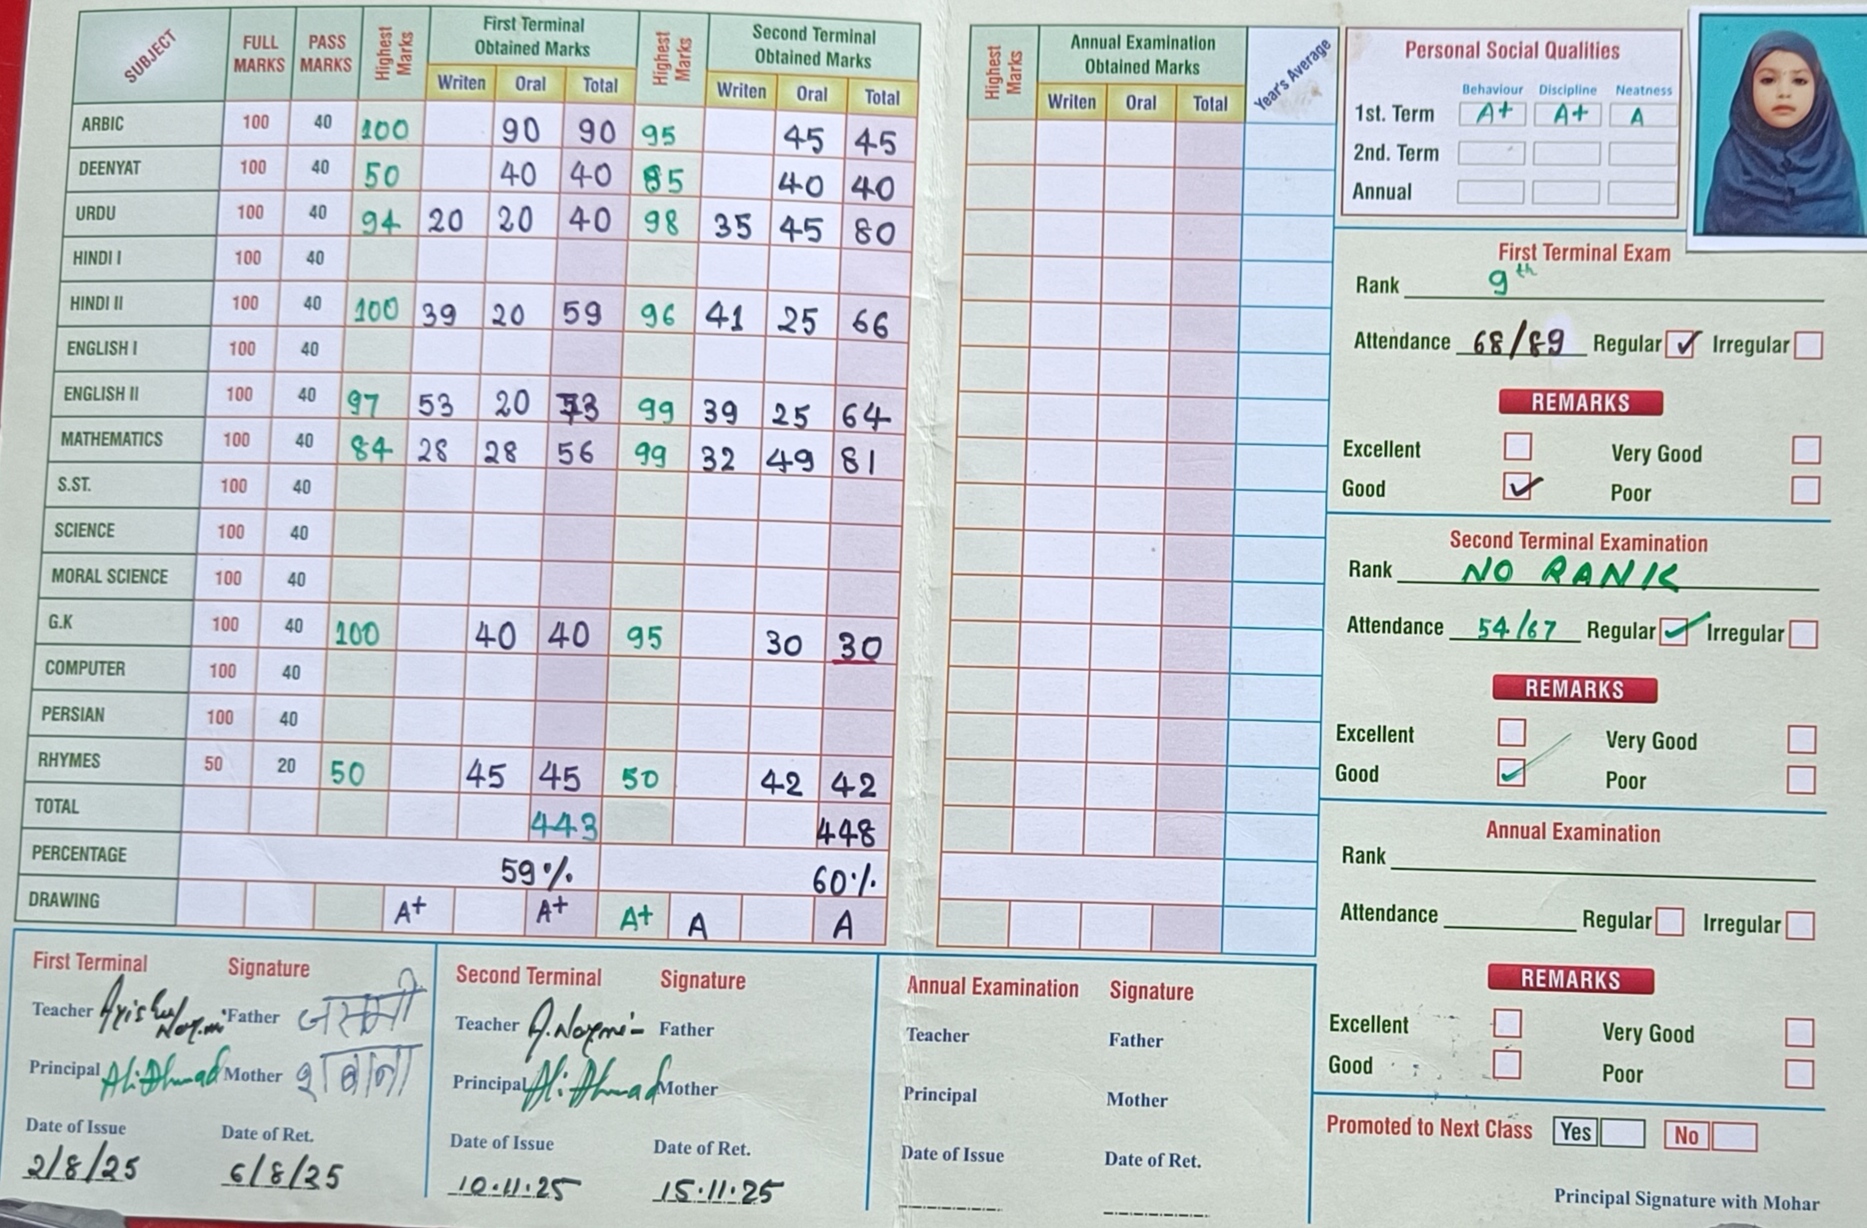 SUBJECT FULL MARKS PASS MARKS Highest Marks First Terminal Obtained Marks Highest Marks Second Terminal Obtained Marks
Writen Oral Total Writen Oral Total
ARBIC 100 40 100 90 90 95 45 45
DEENYAT 100 40 50 40 40 85 40 40
URDU 100 40 94 20 20 40 98 35 45 80
HINDI I 100 40
HINDI II 100 40 100 39 20 59 96 41 25 66
ENGLISH I 100 40
ENGLISH II 100 40 97 53 20 73 99 39 25 64
MATHEMATICS 100 40 84 28 28 56 99 32 49 81
S.ST. 100 40
SCIENCE 100 40
MORAL SCIENCE 100 40
G.K 100 40 100 40 40 95 30 30
COMPUTER 100 40
PERSIAN 100 40
RHYMES 50 20 50 45 45 50 42 42
TOTAL 443 448
PERCENTAGE 59% 60%
DRAWING A+ A+ A+ A A
First Terminal Signature
Teacher Father
Principal Ali Ahmad Mother शबाना
Date of Issue Date of Ret.
2/8/25 6/8/25
Second Terminal Signature
Teacher Father
Principal Ali Ahmad Mother
Date of Issue Date of Ret.
10.11.25 15.11.25
Highest Marks Annual Examination Obtained Marks Year's Average
Writen Oral Total
Annual Examination Signature
Teacher Father
Principal Mother
Date of Issue Date of Ret.
Personal Social Qualities
Behaviour Discipline Neatness
1st. Term A+ A+ A
2nd. Term
Annual
First Terminal Exam
Rank 9th
Attendance 68/89 Regular Irregular
REMARKS
Excellent Very Good
Good Poor
Second Terminal Examination
Rank NO RANK
Attendance 54/67 Regular Irregular
REMARKS
Excellent Very Good
Good Poor
Annual Examination
Rank
Attendance Regular Irregular
REMARKS
Excellent Very Good
Good Poor
Promoted to Next Class Yes No
Principal Signature with Mohar